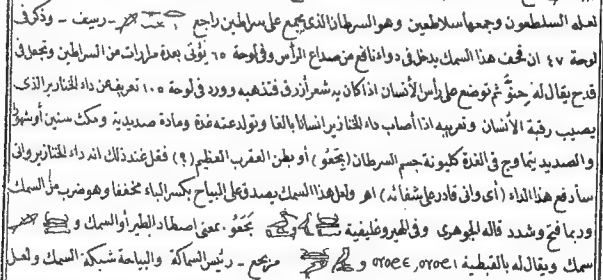 لعله السلطعون وجمعها سلاطعين وهو السرطان الذى يجمع على سراطين راجع ـ رسيف ـ وذكر فى
لوحة ٤٧ ان قحف هذا السمك يدخل فى دواء نافع من صداع الرأس وفى لوحة ٦٥ يؤتى بعدة مرارات من السراطين وتجعل فى
قدح يقال له حنو ثم توضع على رأس الأنسان اذا كان به شعر أزرق فتذهبه وورد فى لوحة ١٠٥ تعريف عن داء الخنازير الذى
يصيب رقبة الأنسان وتعريبه اذا أصاب داء الخنازير انسانا بالغا وتولد عنه غدة ومادة صديدية ومكث سنين أو شهرا
والصديد يتماوج فى الغدة كليونة جسم السرطان (بحعو) أو بطن العقرب العظيم (؟) فقل عند ذلك انه داء الخنازير وانى
سأدفع هذا الداء (أى وانى قادر على شفائه) اهر ولعل هذا السمك يصدق على البياح بكسر الباء مخففا وهو ضرب من السمك
وربما فتح وشدد قاله الجوهرى وفى الهيروغليفية بحعو بمعنى اصطاد الطير أو السمك و
سمك ويقال له بالقبطية و مر بحع ـ رئيس السماكة والبياحة شبكة السمك ولعل